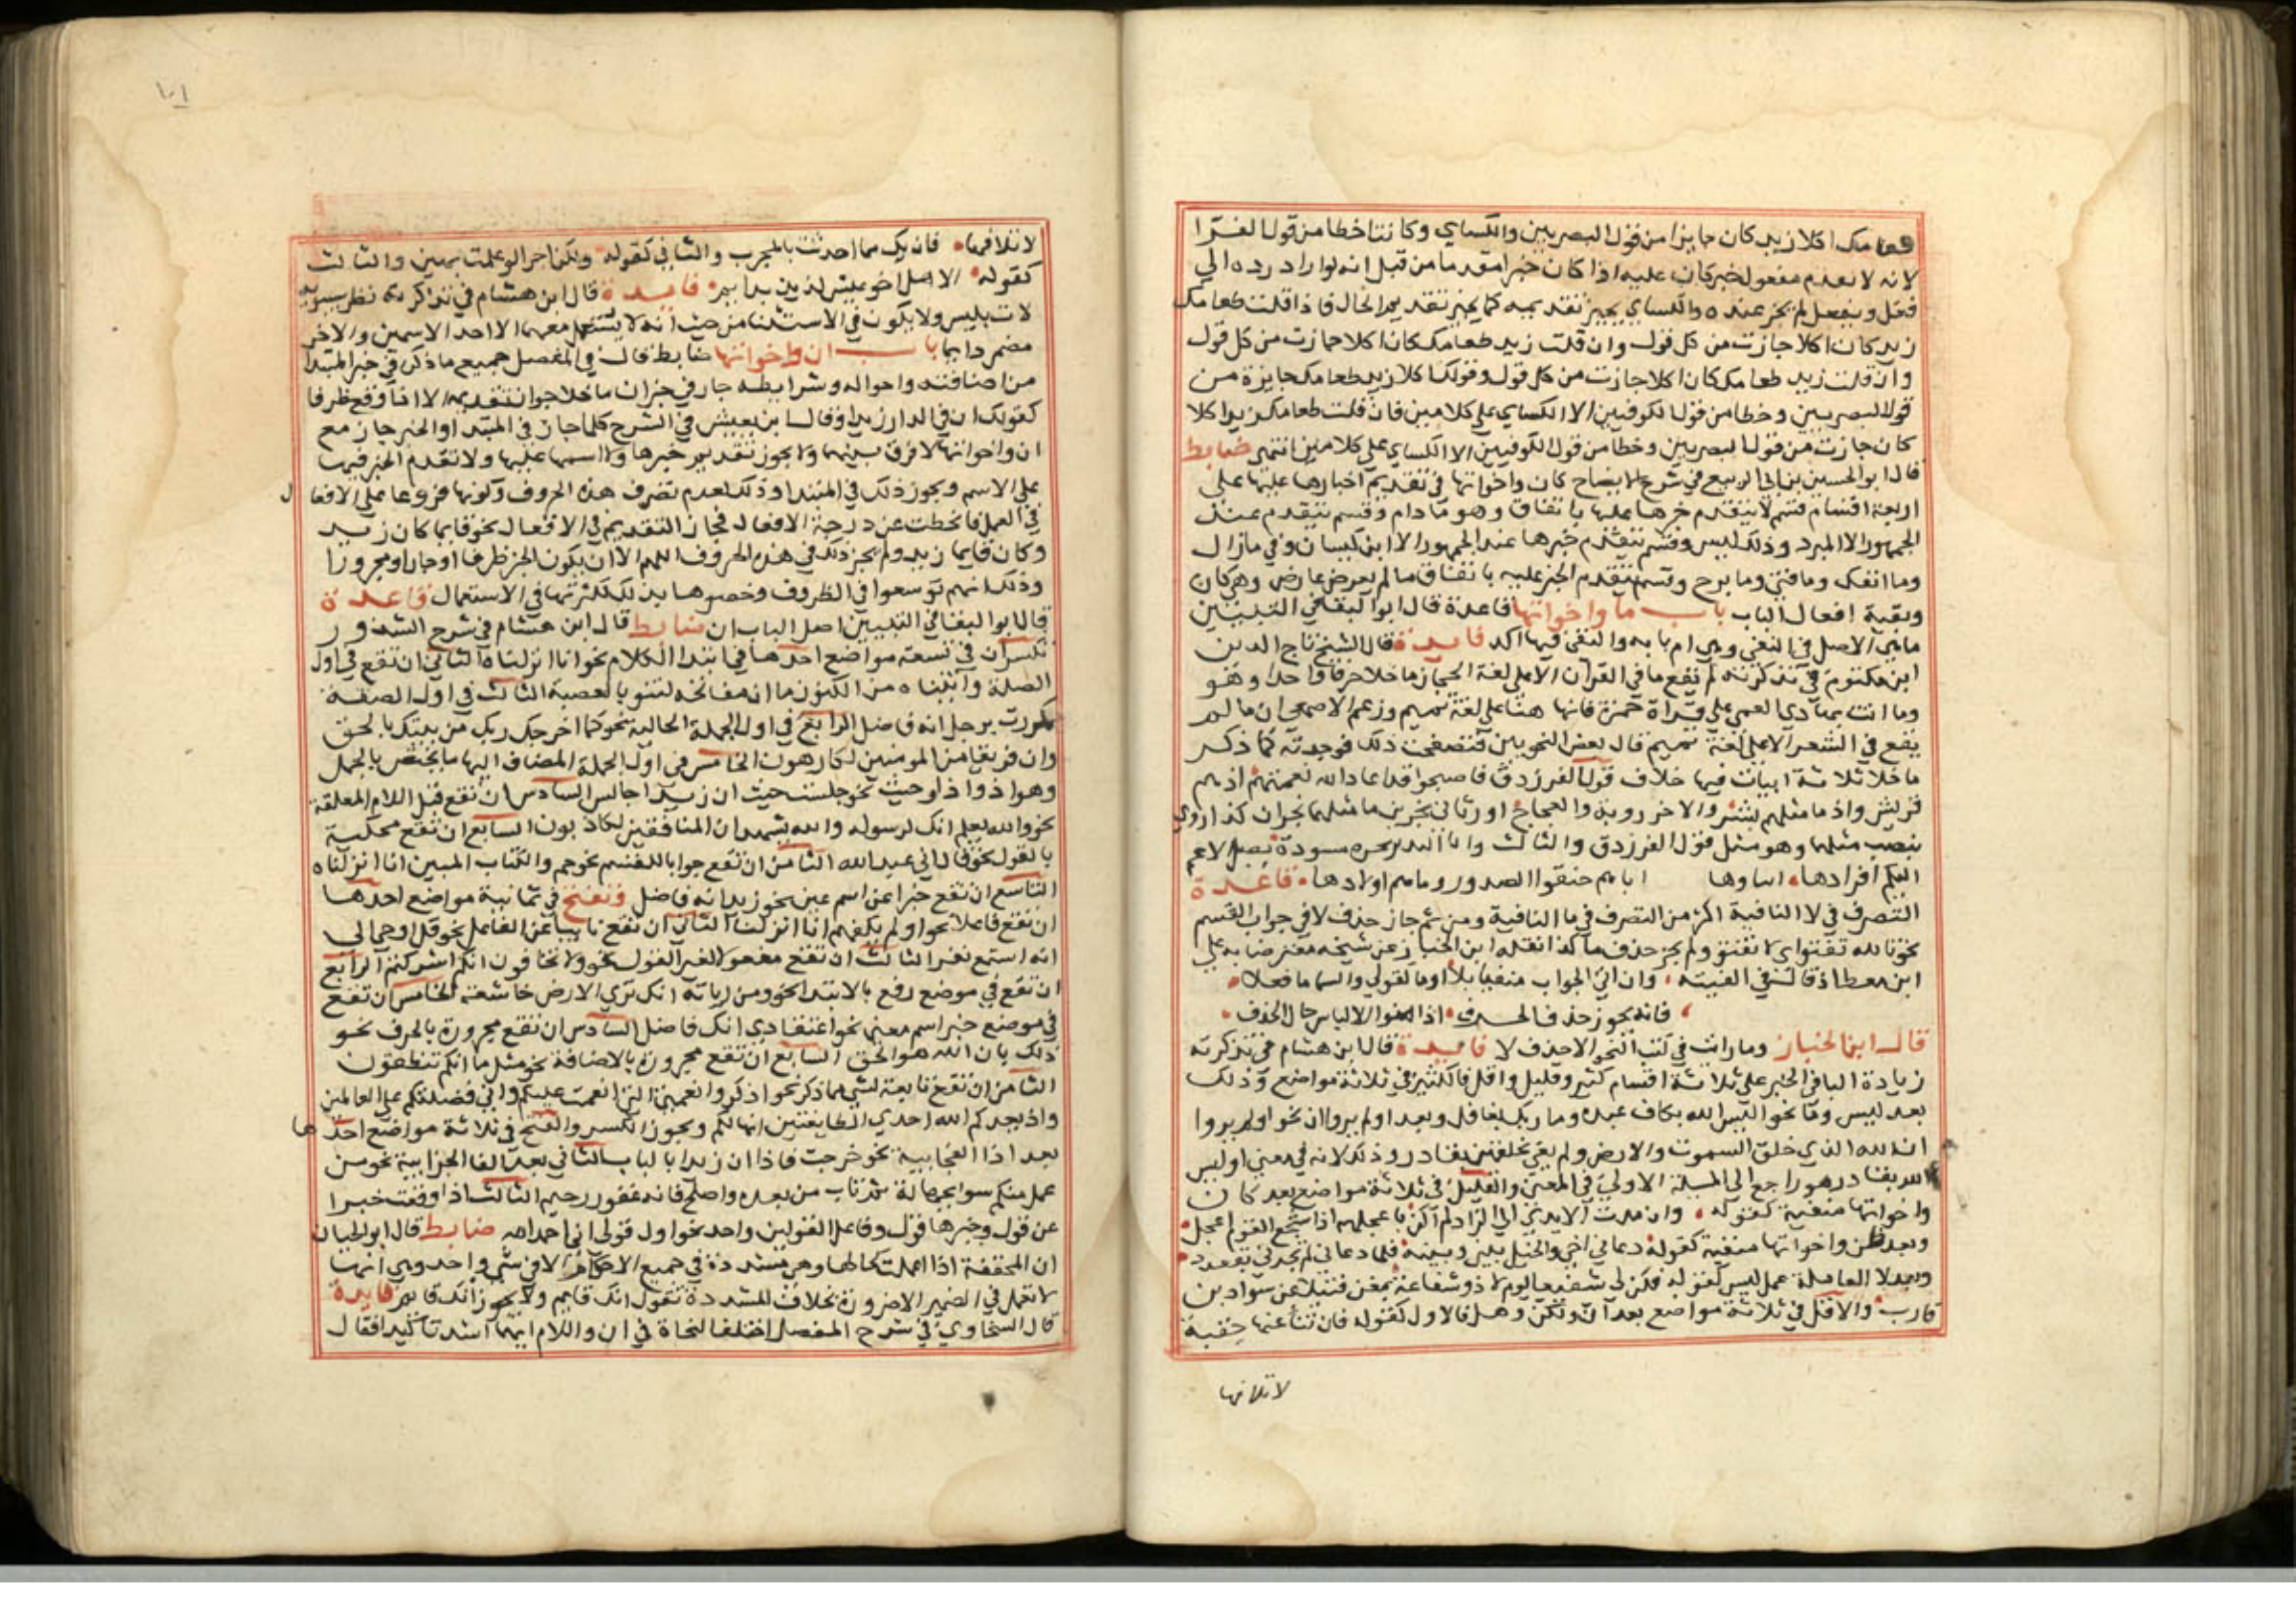 طعامك اكلا زيد كان جايزا من قول البصريين والكساي وكانتا خطا من قول الفرا
لانه لا يقدم مفعول خبر كان عليه اذا كان خبرا مقدما من قبل انه لو اراد رده الي
فعل ويفعل لم يجز عنده والكساي يجيز تقديمه كما يجيز تقديم الحال فاذا قلت طعامك
زيد كان اكلا جازت من كل قول وان قلت زيد طعامك كان اكلا جازت من كل قول
وان قلت زيد طعامك كان اكلا جازت من كل قول وقولك اكلا زيد طعامك جايزة من
قول البصريين وخطا من قول الكوفيين الا الكساي علي كلامين فان قلت طعامك زيد اكلا
كان جازت من قول البصريين وخطا من قول الكوفيين الا الكساي علي كلامين انتهي ضابط
قال ابو الحسين بن ابي الربيع في شرح الايضاح كان واخواتها في تقديم اخبارها عليها علي
اربعة اقسام قسم لا يتقدم خبرها عليها باتفاق وهو مادام وقسم يتقدم عند
الجمهور الا المبرد وذلك ليس وقسم يتقدم خبرها عند الجمهور الا ابن كيسان وفي مازال
وما انفك وما فتئ وما برح وقسم يتقدم الخبر عليه باتفاق ما لم يعرض عارض وهي كان
وبقية افعال الباب باب ما واخواتها قاعدة قال ابو البقا في التبيين
ما هي الاصل في النفي وهي ام بابه والنفي فيها اكد فايدة قال الشيخ تاج الدين
ابن مكتوم في تذكرته لم تقع ما في القران الا علي لغة الحجاز ما خلا حرفا واحدا وهو
وما انت بهادي العمي علي قراة حمزة فانها هنا علي لغة تميم وزعم الاصمعي ان ما لم
يقع في الشعر الا علي لغة تميم قال بعض النحويين فتصفحت ذلك فوجدته كما ذكر
ما خلا ثلاثة ابيات فيها خلاف قول الفرزدق فاصبحوا قد اعاد الله نعمتهم اذ هم
قريش واذ ما مثلهم بشر والاخر روبة والعجاج اورثاني نجرين ما مثلهما نجران كذا روي
بنصب مثلهما وهو مثل قول الفرزدق والثالث وانا النذير بحرة مسودة تصل الاعم
اليكم اقوادها ابناوها اباهم حنقوا الصدور وما هم اولادها قاعدة
التصرف في لا النافية اكثر من التصرف في ما النافية ومن ثم جاز حذف لا في جواب القسم
نحو تالله تفتوا اي لا تفتؤ ولم يجز حذف ما كذا نقله ابن الخباز عن شيخه معترضا به علي
ابن معط اذ قال في الفيته وان اتي الجواب منفيا بلا او ما كقولي والسما ما فعلا
فانه يجوز حذف الحرف اذا امنوا الالباس حال الحذف
قال ابن الخباز وما رايت في كتب النحو الا حذف لا فايدة قال ابن هشام في تذكرته
زيادة البا في الخبر علي ثلاثة اقسام كثير وقليل واقل فالكثير في ثلاثة مواضع وذلك
بعد ليس وما نحو اليس الله بكاف عبده وما ربك بغافل وبعد اولم يروا ان نحو اولم يروا
ان الله الذي خلق السموت والارض ولم يعي بخلقهن بقادر وذلك لانه في معني اوليس
الله بقادر هو راجع الي المسيلة الاولي في المعني والقليل في ثلاثة مواضع بعد كان
واخواتها منفية كقوله وان مدت الايدي الي الزاد لم اكن باعجلهم اذ اجشع القوم اعجل
وبعد ظن واخواتها منفية كقوله دعاني اخي والخيل بيني وبينه فلما دعاني لم يجدني بقعدد
وبعد لا العاملة عمل ليس كقوله فكن لي شفيعا يوم لا ذو شفاعة بمغن فتيلا عن سواد بن
قارب والاقل في ثلاثة مواضع بعد ان ولكن وهل فالاول كقوله فان تنا عنها حقبة
لا تلاقها
١٠١
لا تلاقها فانك مما احدثت بالمجرب والثاني كقوله ولكن اجرا لو علمت بهين والثالث
كقوله الا هل اخو عيش لذيذ بدايم فايدة قال ابن هشام في تذكرته نظر سيبويه
لات بليس ولا يكون في الاستثنا من حيث انه لا يستعمل معهما الا احد الاسمين والاخر
مضمر دايما باب ان واخواتها ضابط قال في المفصل جميع ما ذكر في خبر المبتدا
من اصنافه واحواله وشرايطه جار في خبر ان ما خلا جواز تقديمه الا اذا وقع ظرفا
كقولك ان في الدار زيدا وقال ابن يعيش في الشرح كلما جاز في المبتدا والخبر جاز مع
ان واخواتها لا فرق بينهما ولا يجوز تقديم خبرها ولا اسمها عليها ولا تقدم الخبر فيها
علي الاسم ويجوز ذلك في المبتدا وذلك لعدم تصرف هذه الحروف وكونها فروعا علي الافعال
في العمل فانحطت عن درجة الافعال فجاز التقديم في الافعال نحو قايما كان زيد
وكان قايما زيد ولم يجز ذلك في هذه الحروف اللهم الا ان يكون الخبر ظرفا او جارا ومجرورا
وذلك انهم توسعوا في الظروف وخصوها بذلك لكثرتها في الاستعمال قاعدة
قال ابو البقا في التبيين اصل الباب ان ضابط قال ابن هشام في شرح الشذور
تكسر ان في تسعة مواضع احدها في ابتدا الكلام نحو انا انزلناه الثاني ان تقع في اول
الصلة واتيناه من الكنوز ما ان مفاتحه لتنوء بالعصبة الثالث في اول الصفة
كمررت برجل انه فاضل الرابع في اول الجملة الحالية نحو كما اخرجك ربك من بيتك بالحق
وان فريقا من المومنين لكارهون الخامس في اول الجملة المضاف اليها ما يختص بالجمل
وهو اذ واذا وحيث نحو جلست حيث ان زيدا جالس السادس ان تقع قبل اللام المعلقة
نحو والله يعلم انك لرسوله والله يشهد ان المنافقين لكاذبون السابع ان تقع محكية
بالقول نحو قال اني عبد الله الثامن ان تقع جوابا للقسم نحو حم والكتاب المبين انا انزلناه
التاسع ان تقع خبرا عن اسم عين نحو زيد انه فاضل وتفتح في ثمانية مواضع احدها
ان تقع فاعلا نحو اولم يكفهم انا انزلنا الثاني ان تقع نايبا عن الفاعل نحو قل اوحي الي
انه استمع نفر الثالث ان تقع مفعولا لغير القول نحو ولا تخافون انكم اشركتم الرابع
ان تقع في موضع رفع بالابتدا نحو ومن اياته انك تري الارض خاشعة الخامس ان تقع
في موضع خبر اسم معني نحو اعتقادي انك فاضل السادس ان تقع مجرورة بالحرف نحو
ذلك بان الله هو الحق السابع ان تقع مجرورة بالاضافة نحو مثل ما انكم تنطقون
الثامن ان تقع تابعة لشي مما ذكر نحو اذكروا نعمتي التي انعمت عليكم واني فضلتكم علي العالمين
واذ يعدكم الله احدي الطايفتين انها لكم ويجوز الكسر والفتح في ثلاثة مواضع احدها
بعد اذا الفجايية نحو خرجت فاذا ان زيدا بالباب الثاني بعد الفا الجزايية نحو من
عمل منكم سوا بجهالة ثم تاب من بعده واصلح فانه غفور رحيم الثالث اذا وقعت خبرا
عن قول وخبرها قول وفاعل القولين واحد نحو اول قولي اني احمد الله ضابط قال ابو الحيان
ان المخففة اذا اعملت كحالها وهي مشددة في جميع الاحكام الا في شي واحد وهي انها
لا تعمل في الضمير الا ضرورة بخلاف المشددة تقول انك قايم ولا يجوز انك قايم فايدة
قال السخاوي في شرح المفصل اختلف النحاة في ان واللام ايهما اشد تاكيدا فقال